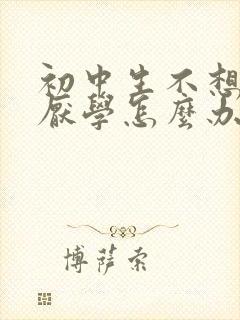 初中生不想
厭學怎麼办
博萨索